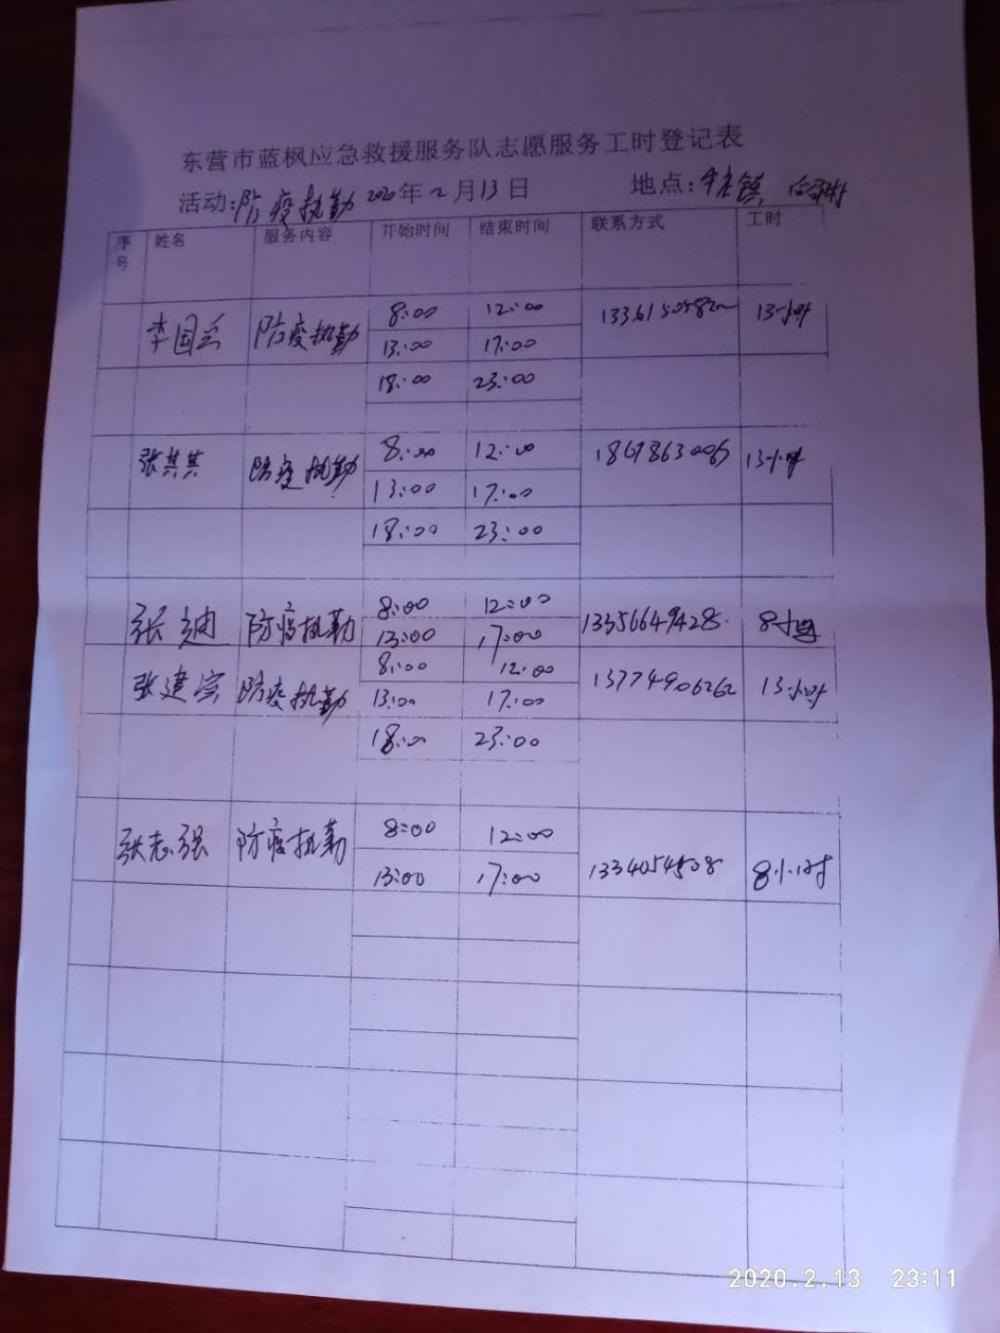 东营市蓝枫应急救援服务队志愿服务工时登记表
活动:防疫执勤 2020年2月13日 地点:牛庄镇
序号 姓名 服务内容 开始时间 结束时间 联系方式 工时
李国 防疫执勤 8:00 12:00 13小时
13:00 17:00
18:00 23:00
张其其 防疫执勤 8:00 12:00 13小时
13:00 17:00
18:00 23:00
张迪 防疫执勤 8:00 12:00 13356649428 8小时
13:00 17:00
张建宗 防疫执勤 8:00 12:00 13774906262 13小时
13:00 17:00
18:00 23:00
张志强 防疫执勤 8:00 12:00
13:00 17:00 1334054508 8小时
2020.2.13 23:11